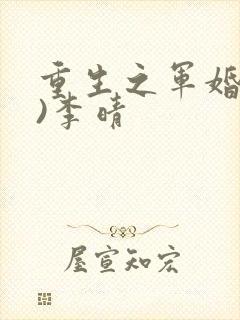 重生之军婚
)李晴
屋宣知宏